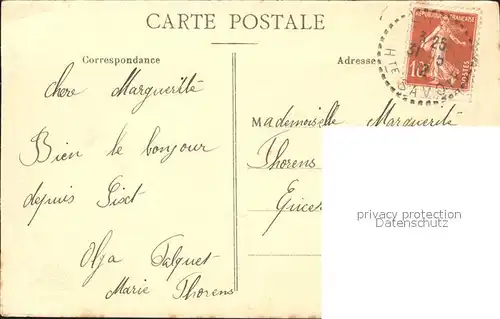 CARTE POSTALE
Correspondance
Adresse
RÉPUBLIQUE FRANÇAISE
10
POSTES
Hte SAVOIE
Chere Marguerite
Bien le bonjour
depuis Sixt
Olga Falquet
Marie Thorens
Mademoiselle Marguerite
Thorens
Epicer
privacy protection
Datenschutz